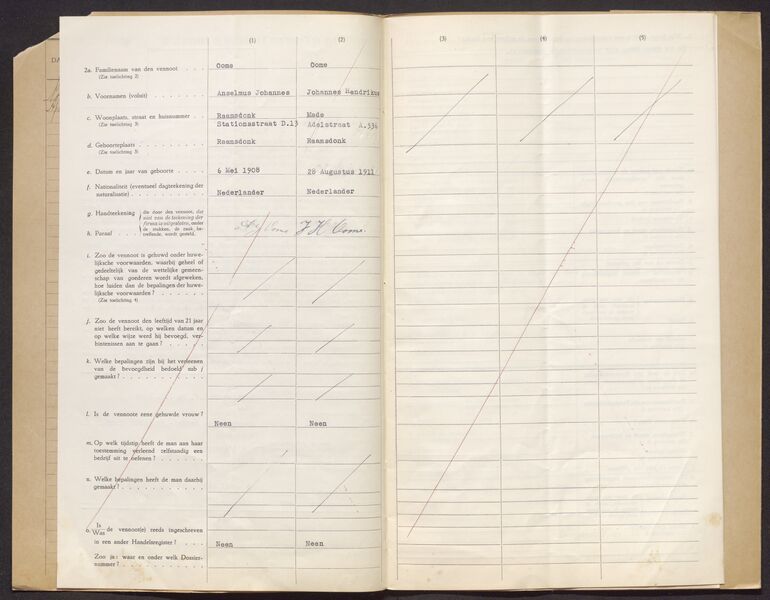 DA
(1) (2) (3) (4) (5)
2a. Familienaam van den vennoot . . . Ooms Ooms
(Zie toelichting 2)
b. Voornamen (voluit) . . . . . . . Anselmus Johannes Johannes Hendrikus
c. Woonplaats, straat en huisnummer . . Raamsdonk Made
(Zie toelichting 3) Stationsstraat D.13 Adelstraat A.536
d. Geboorteplaats . . . . . . . . Raamsdonk Raamsdonk
(Zie toelichting 3)
e. Datum en jaar van geboorte . . . . . 6 Mei 1908 28 Augustus 1911
f. Nationaliteit (eventueel dagteekening der
naturalisatie) . . . . . . . . . Nederlander Nederlander
g. Handteekening
h. Paraaf . . .
die door den vennoot, dat
niet van de teekening der
firma is uitgesloten, onder
de stukken, de zaak be-
treffende, wordt gesteld.
Ooms J H Ooms.
i. Zoo de vennoot is gehuwd onder huwe-
lijksche voorwaarden, waarbij geheel of
gedeeltelijk van de wettelijke gemeen-
schap van goederen wordt afgeweken,
hoe luiden dan de bepalingen der huwe-
lijksche voorwaarden? . . . . . .
(Zie toelichting 4)
j. Zoo de vennoot den leeftijd van 21 jaar
niet heeft bereikt, op welken datum en
op welke wijze werd hij bevoegd, ver-
bintenissen aan te gaan? . . . . .
k. Welke bepalingen zijn bij het verleenen
van de bevoegdheid bedoeld sub j
gemaakt? . . . . . . . . . .
l. Is de vennoote eene gehuwde vrouw?
Neen Neen
m. Op welk tijdstip heeft de man aan haar
toestemming verleend zelfstandig een
bedrijf uit te oefenen? . . . . . .
n. Welke bepalingen heeft de man daarbij
gemaakt? . . . . . . . . . .
o. Is
Was de vennoot(e) reeds ingeschreven
in een ander Handelsregister? . . . . Neen Neen
Zoo ja: waar en onder welk Dossier-
nummer? . . . . . . . . . .